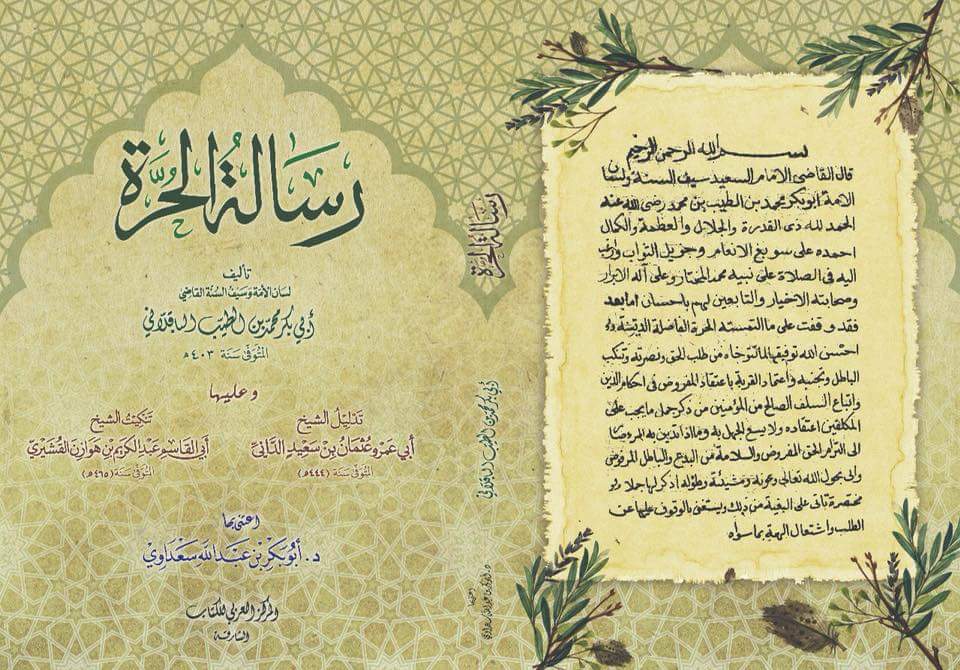 رسالة الحُرَّة
تأليف
لسان الأمة وسيف السنة القاضي
أبي بكر محمد بن الطيب الباقلاني
المتوفى سنة ٤٠٣هـ
وعليها
تذليل الشيخ
أبي عمرو عثمان بن سعيد الداني
المتوفى سنة (٤٤٤هـ)
تنكيت الشيخ
أبي القاسم عبد الكريم بن هوازن القشيري
المتوفى سنة (٤٦٥هـ)
اعتنى بها
د. أبو بكر بن عبد الله سعداوي
المركز العربي للكتاب
الشارقة
رسالة الحرة
أبي بكر محمد بن الطيب الباقلاني
بسم الله الرحمن الرحيم
قال القاضي الامام السعيد سيف السنة ولسان
الامة ابو بكر محمد بن الطيب بن محمد رضي الله عنه
الحمد لله ذي القدرة والجلال والعظمة والكمال
احمده على سوبغ الانعام وجزيل الثواب وارغب
اليه في الصلاة على نبيه محمد المختار وعلى آله الابرار
وصحابته الاخيار والتابعين لهم باحسان اما بعد
فقد وقفت على ما التمسته الحرة الفاضلة الديّنة
احسن الله توفيقها لما تتوخاه من طلب الحق ونصرته وتنكب
الباطل وتجنبه واعتماد القربة باعتقاد المفروض في احكام الدين
واتباع السلف الصالح من المؤمنين من ذكر جمل ما يجب على
المكلفين اعتقاده ولا يسع الجهل به وما اذا تدين به المرء صار
الى التزام الحق المفروض والسلامة من البدع والباطل المرفوض
واني بحول الله تعالى وعونه ومشيئته وطوله اذكر لها جملا
مختصرة تاتي على البغية من ذلك ويستغنى بالوقوف عليها عن
الطلب واشتغال الهمة بما سواه